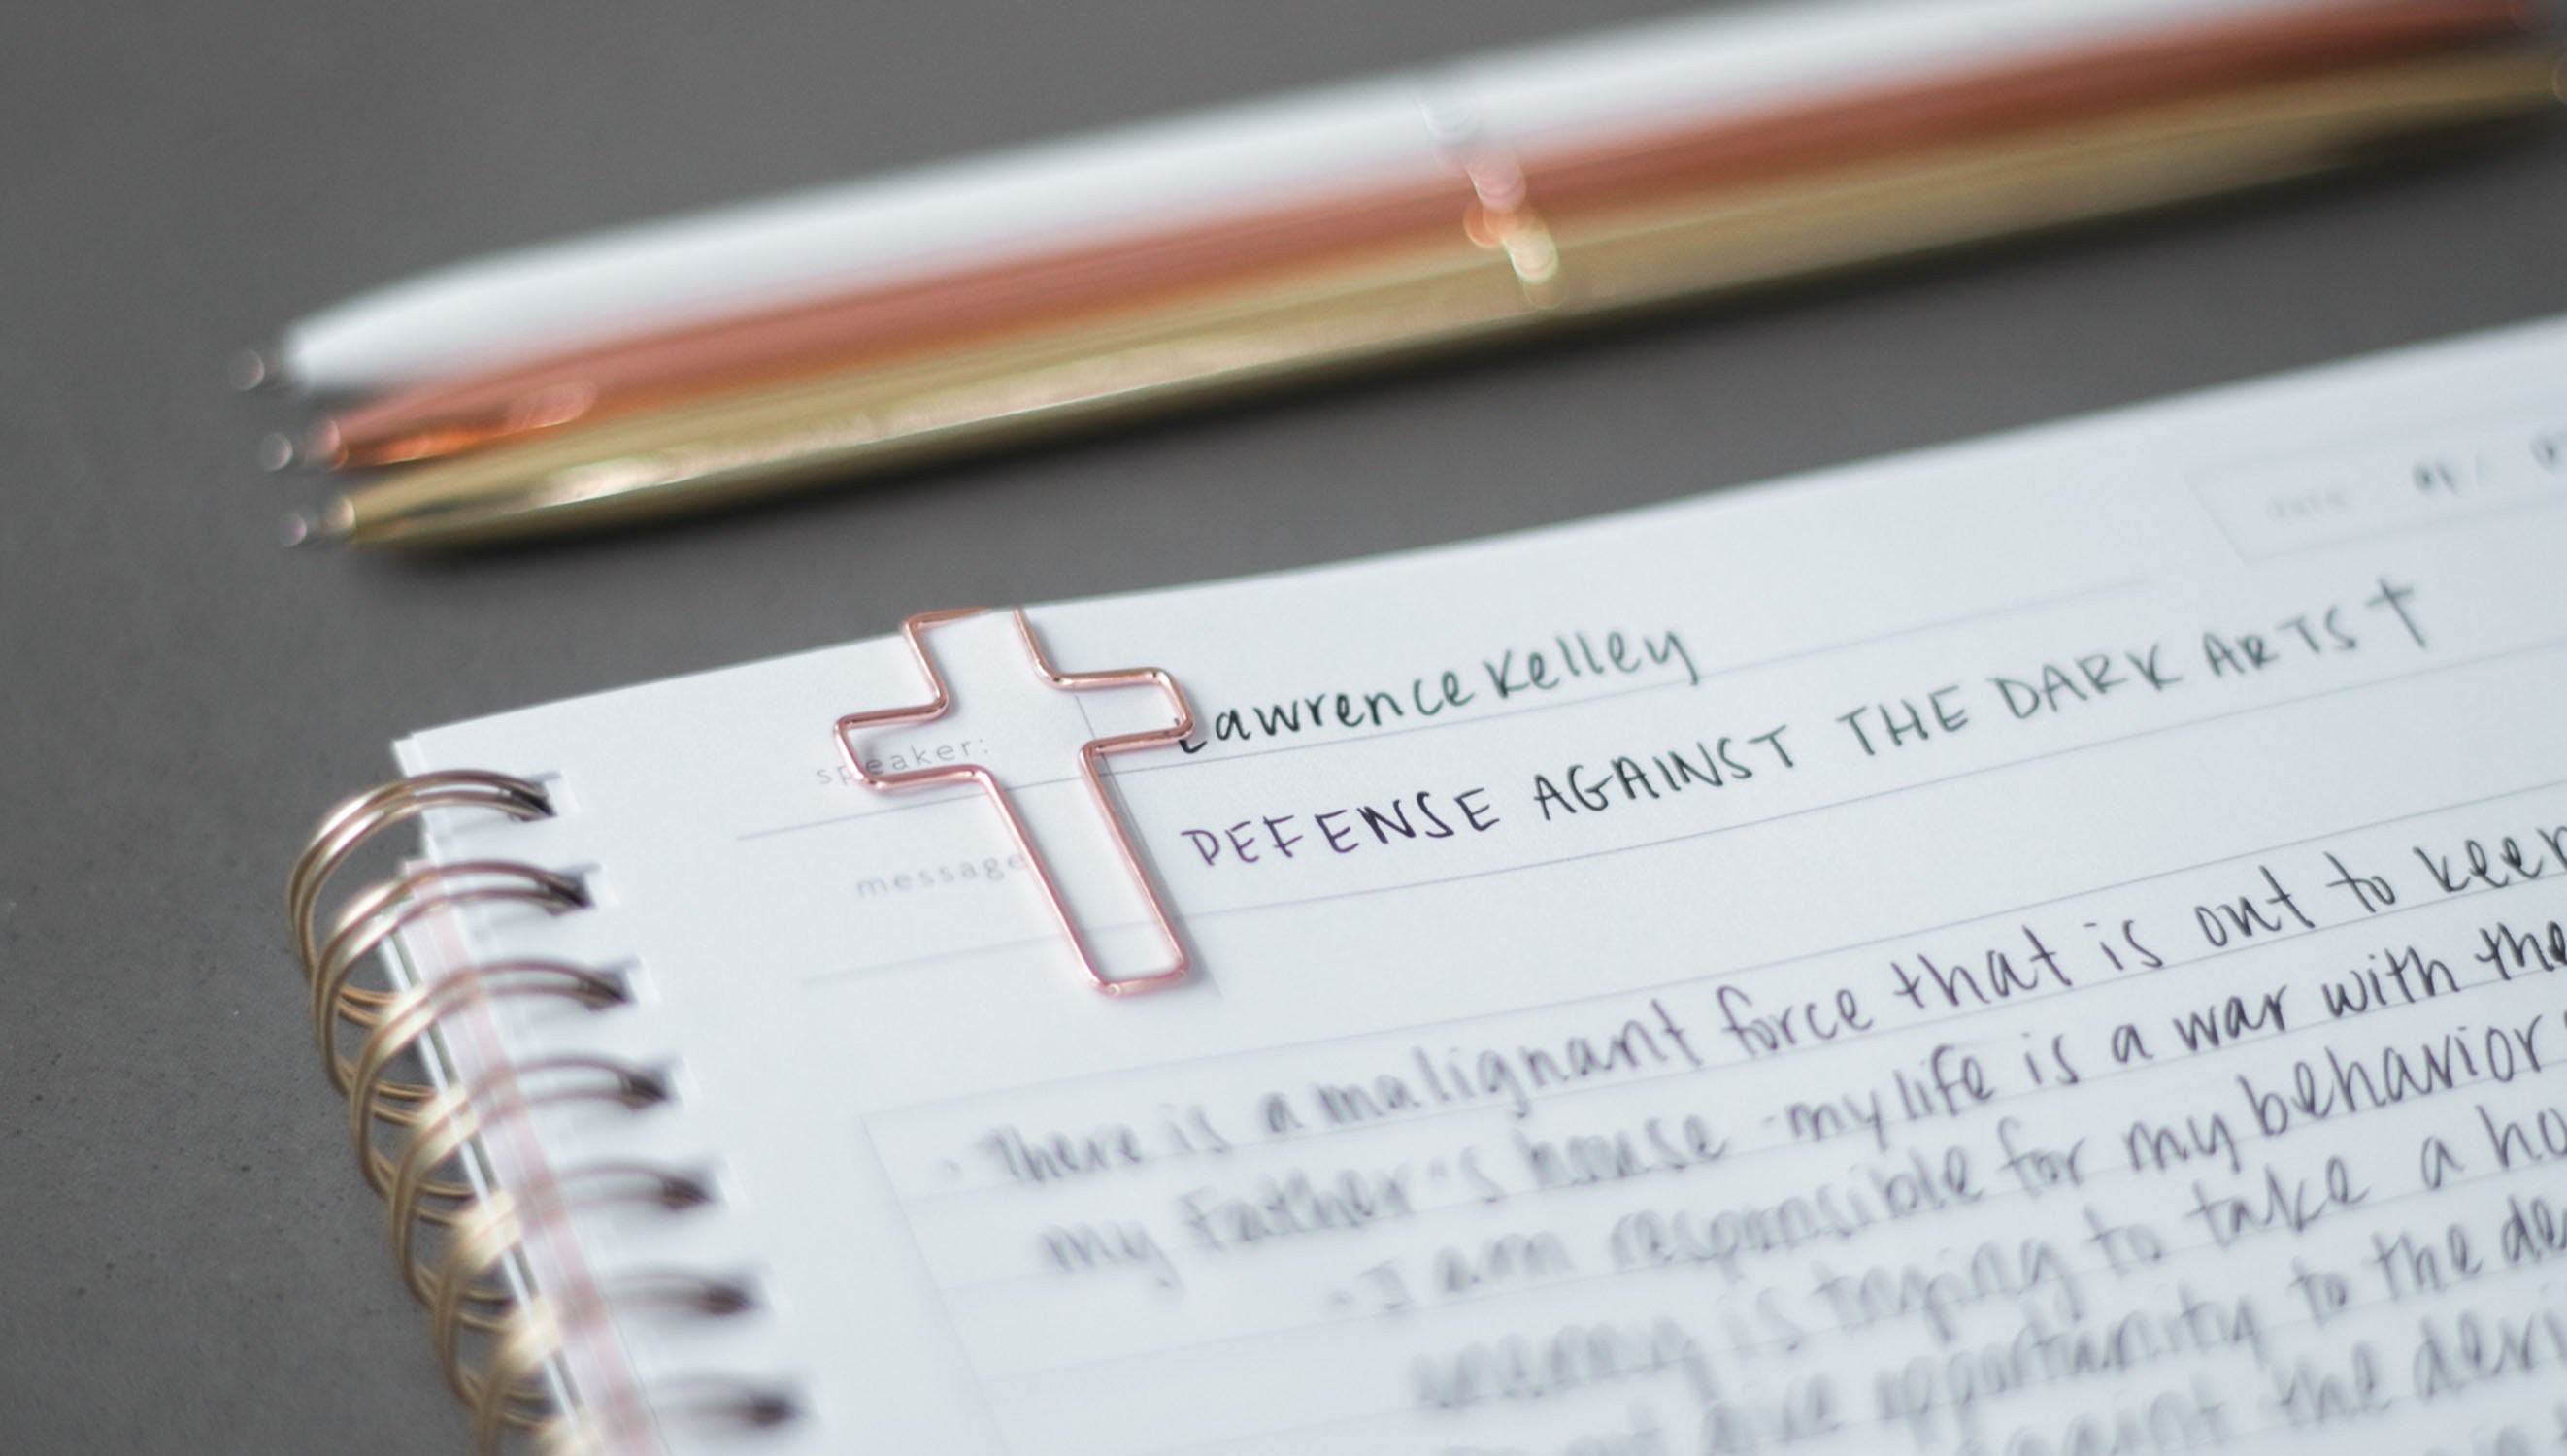 date
speaker: Lawrence Kelley
message DEFENSE AGAINST THE DARK ARTS
• There is a malignant force that is out to keep
my Father's house - my life is a war with the
- I am responsible for my behavior
enemy is trying to take a
give opportunity to the
the